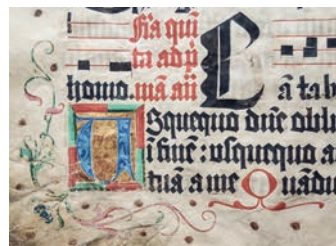 fia qui
ta ad p̄
homo. mā añ
L ātab
Usquequo dñe obli
i finē: usquequo a
tuā a me Quādiu